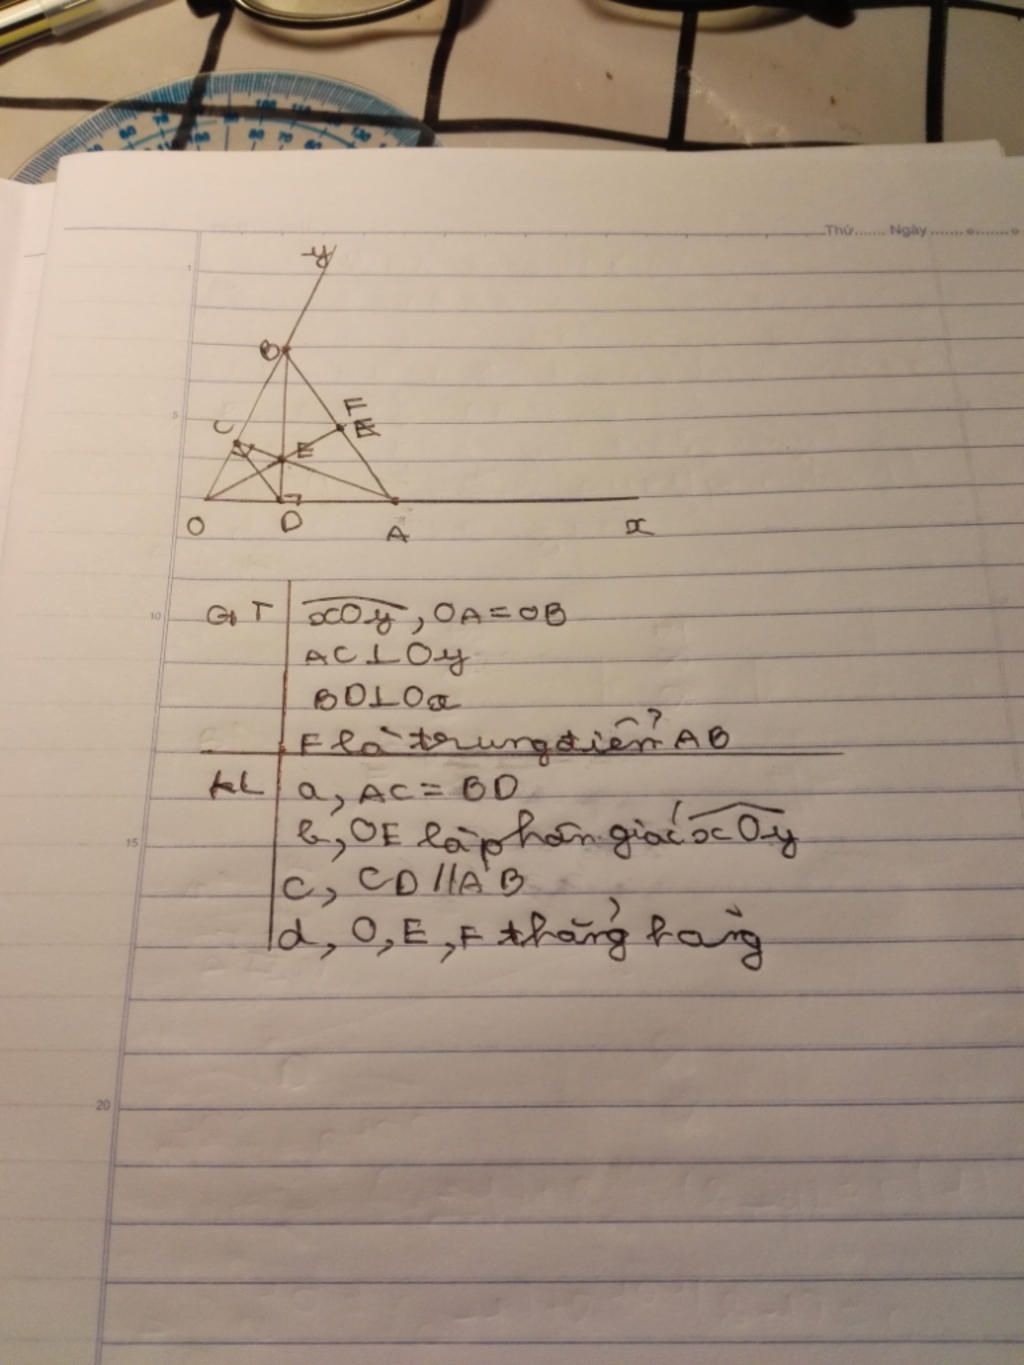 Thứ...... Ngày
y
1
B
5
F
C
E
O
D
A
x
10
GT
xOy, OA = OB
AC ⊥ Oy
BD ⊥ Ox
F là trung điển AB
KL
a, AC = BD
b, OE là phân giác xOy
15
c, CD // AB
d, O, E, F thẳng hàng
20